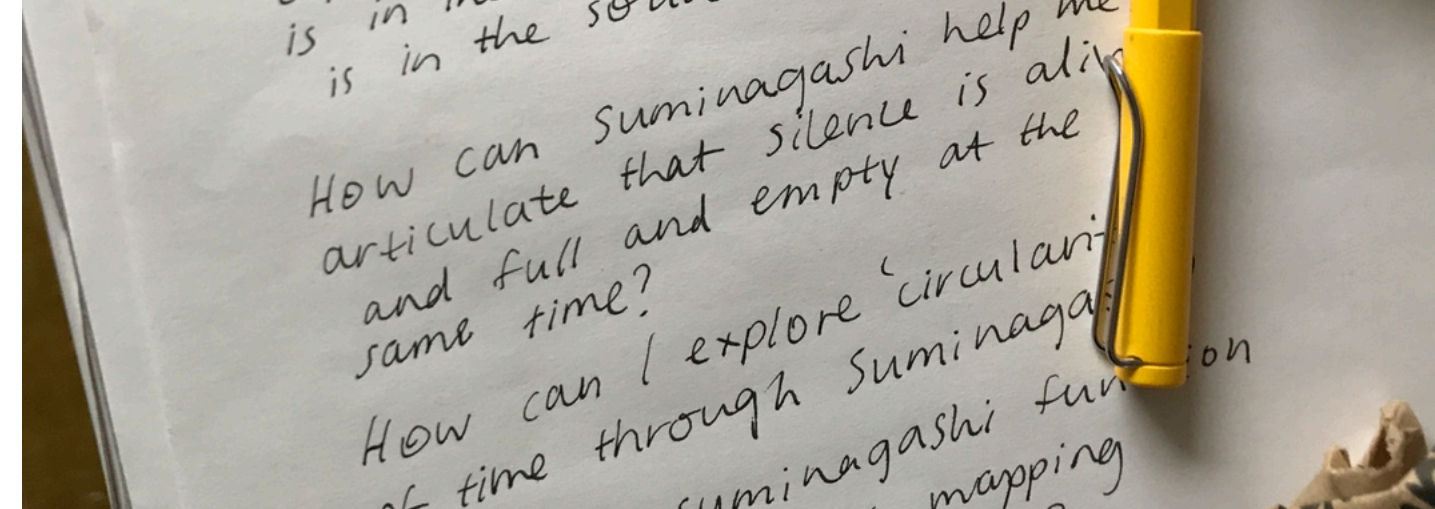 is in
is in the
How can Suminagashi help me
articulate that silence is
and full and empty at the
same time?
How can I explore 'circulari
of time through Suminaga
suminagashi fun ion
mapping